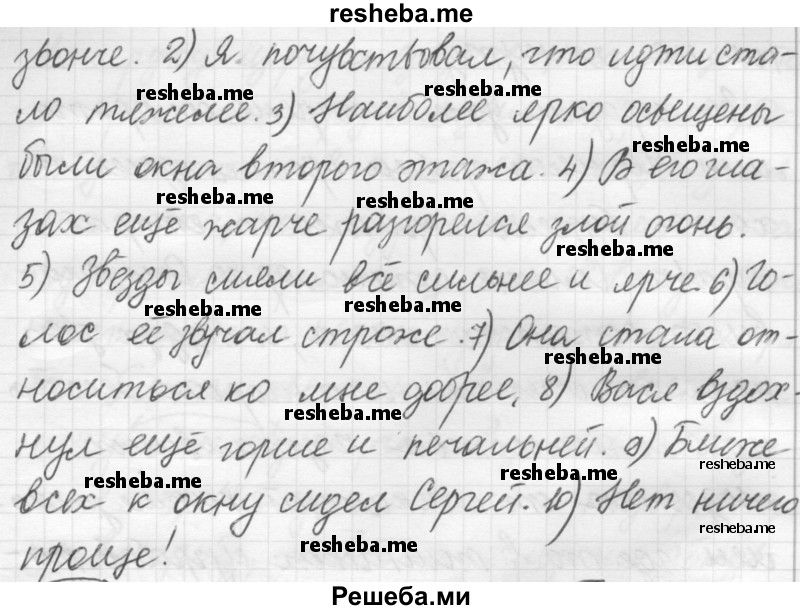 resheba.me
звонче. 2) Я почувствовал, что идти ста-
resheba.me resheba.me
ло тяжелее. 3) Наиболее ярко освещены
resheba.me
были окна второго этажа. 4) В его гла-
resheba.me resheba.me
зах ещё жарче разгорелся злой огонь.
resheba.me
5) Звёзды сияли всё сильнее и ярче. 6) Го-
resheba.me resheba.me
лос её звучал строже. 7) Она стала от-
resheba.me
носиться ко мне добрее. 8) Вася вздох-
resheba.me
нул ещё горше и печальней. 9) Ближе
resheba.me resheba.me resheba.me
всех к окну сидел Сергей. 10) Нет ничего
resheba.me
проще!
resheba.me
Решеба.ми